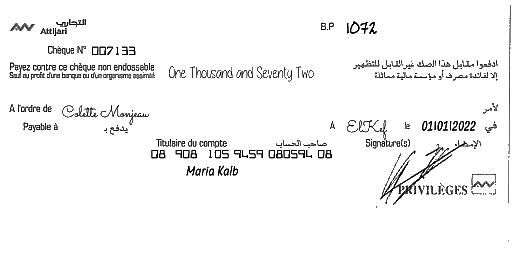 التجاري
Attijari
B.P 1072
Chèque N° 007133
Payez contre ce chèque non endossable
Sauf au profit d'une banque ou d'un organisme assimilé
One Thousand and Seventy Two
ادفعوا مقابل هذا الصك غير القابل للتظهير
إلا لفائدة مصرف أو مؤسسة مالية مماثلة
A l'ordre de Colette Monjeau لأمر
Payable à يدفع بـ A ElKef le 01/01/2022 في
Titulaire du compte صاحب الحساب Signature(s) الإمضاء
08 908 105 9459 080594 08
Maria Kalb
PRIVILÈGES